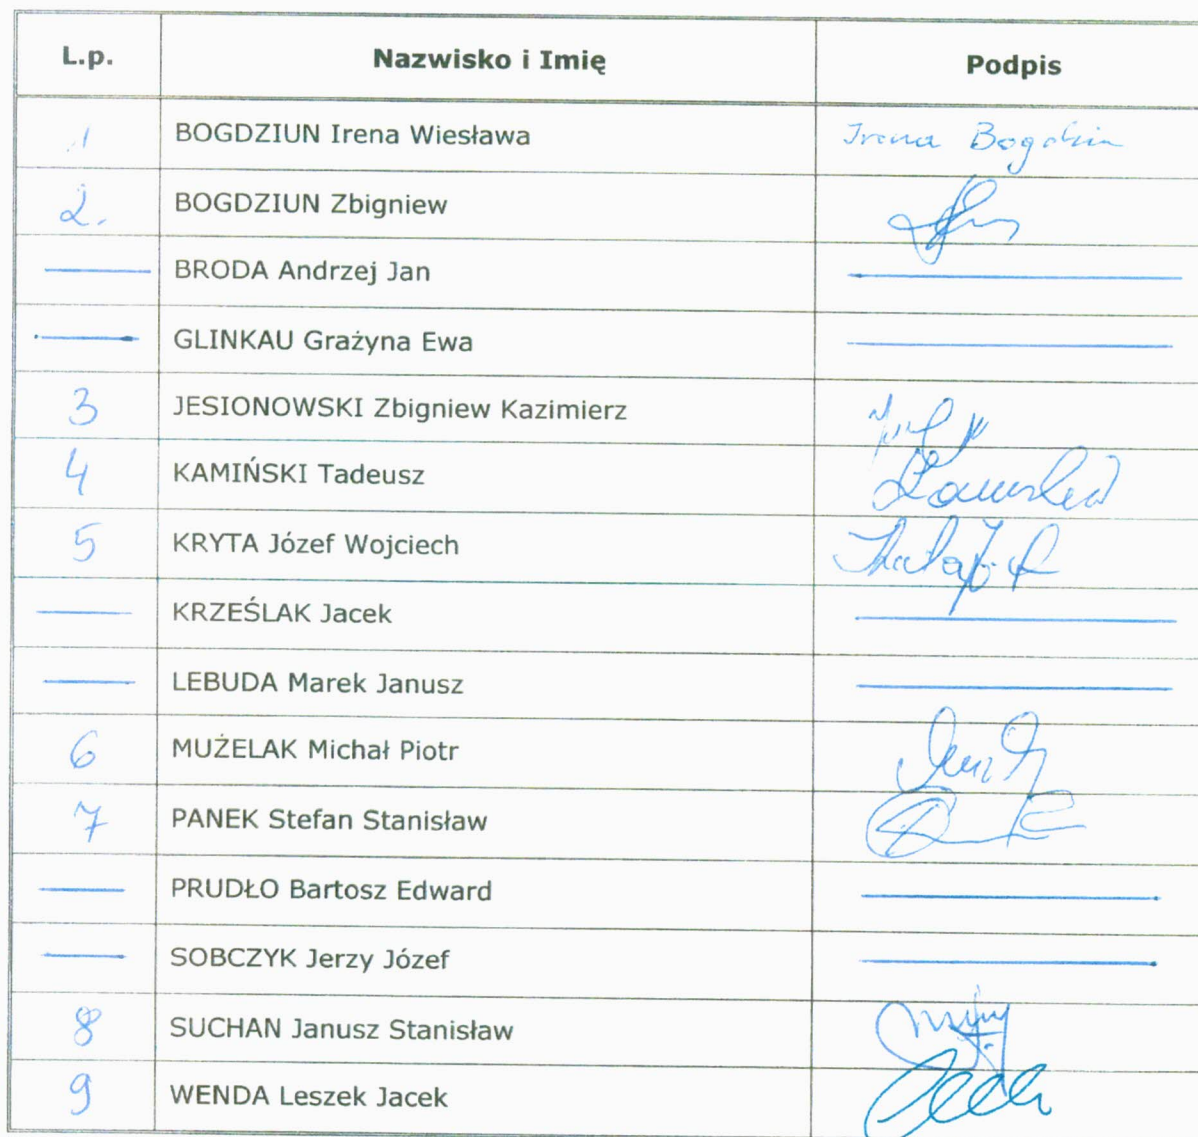 L.p. Nazwisko i Imię Podpis
1 BOGDZIUN Irena Wiesława Irena Bogdziun
2. BOGDZIUN Zbigniew
BRODA Andrzej Jan
GLINKAU Grażyna Ewa
3 JESIONOWSKI Zbigniew Kazimierz
4 KAMIŃSKI Tadeusz
5 KRYTA Józef Wojciech
KRZEŚLAK Jacek
LEBUDA Marek Janusz
6 MUŻELAK Michał Piotr
7 PANEK Stefan Stanisław
PRUDŁO Bartosz Edward
SOBCZYK Jerzy Józef
8 SUCHAN Janusz Stanisław
9 WENDA Leszek Jacek